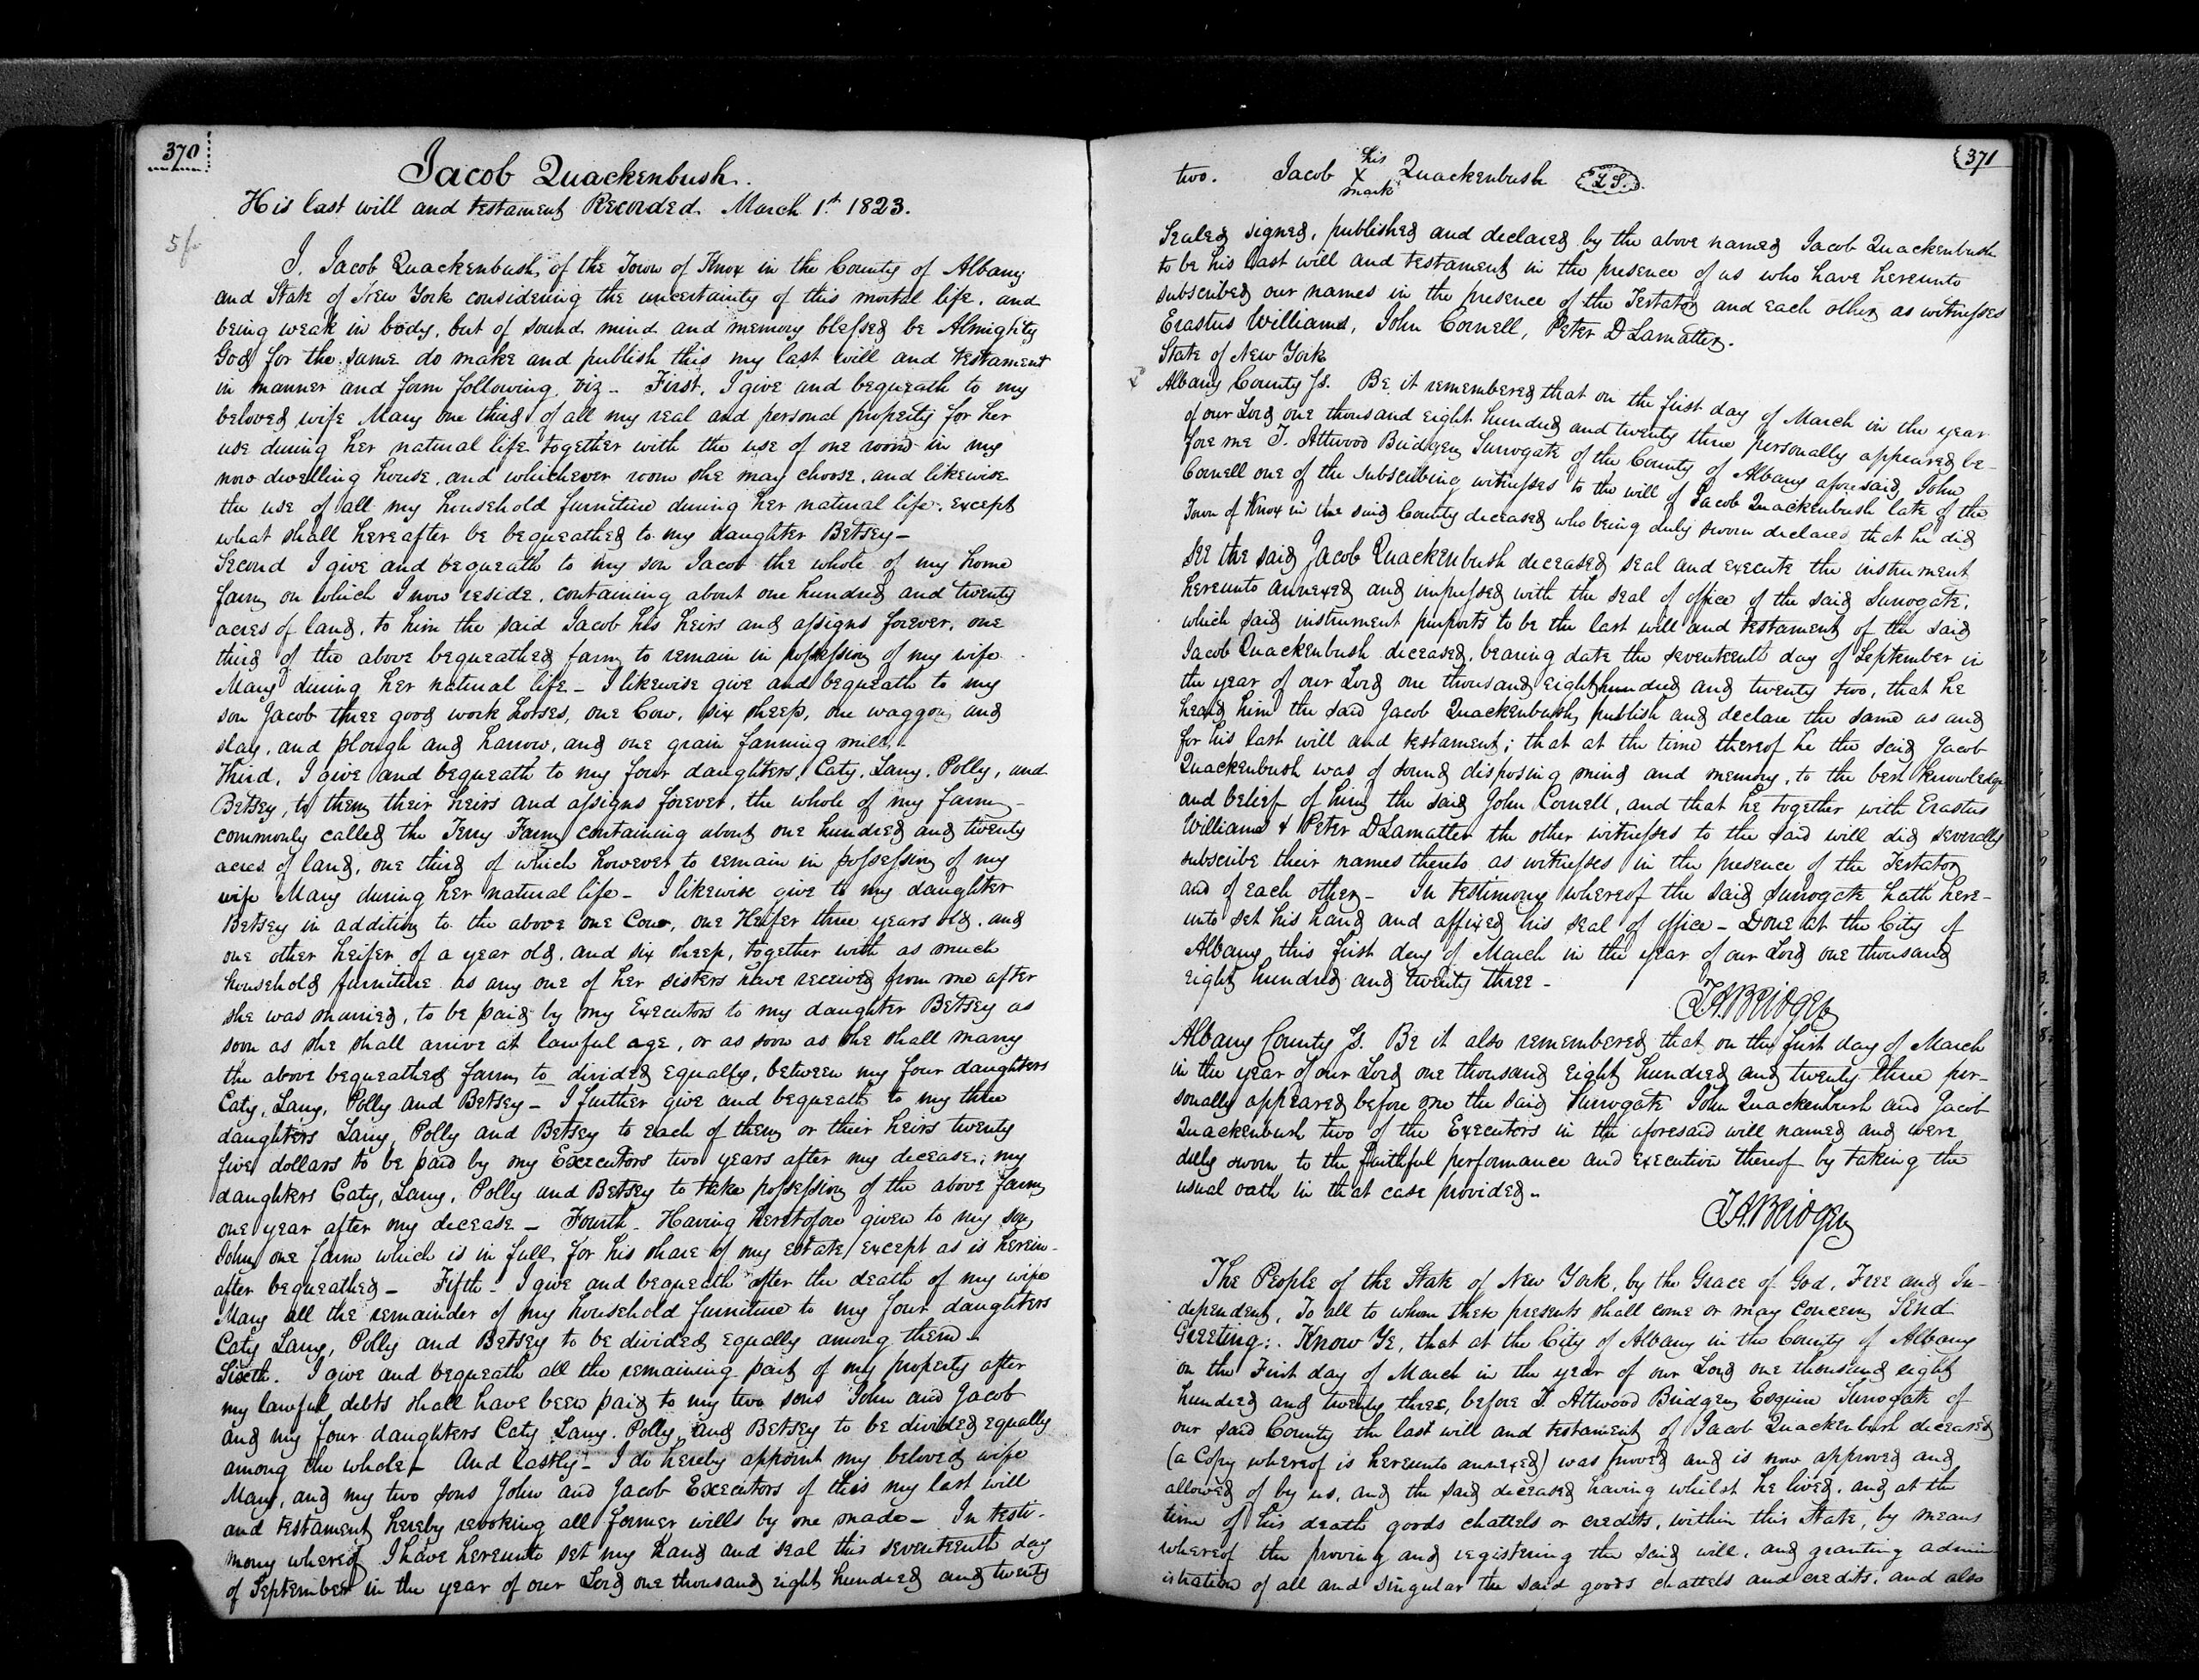 370
Jacob Quackenbush.
His last will and testament Recorded March 1st 1823.
I, Jacob Quackenbush, of the Town of Knox in the County of Albany
and State of New York considering the uncertainty of this mortal life, and
being weak in body, but of sound mind and memory blessed be Almighty
God for the same do make and publish this my last will and testament
in manner and form following, viz - First, I give and bequeath to my
beloved wife Mary one third of all my real and personal property for her
use during her natural life together with the use of one room in my
now dwelling house, and whichever room she may choose, and likewise
the use of all my household furniture during her natural life, except
what shall hereafter be bequeathed to my daughter Betsey -
Second I give and bequeath to my son Jacob the whole of my home
farm on which I now reside, containing about one hundred and twenty
acres of land, to him the said Jacob his heirs and assigns forever, one
third of the above bequeathed farm to remain in possession of my wife
Mary during her natural life - I likewise give and bequeath to my
son Jacob three good work horses, one Cow, six sheep, one waggon and
slay, and plough and harrow, and one grain fanning mill -
Third, I give and bequeath to my four daughters, Caty, Lany, Polly, and
Betsey, to them their heirs and assigns forever, the whole of my farm
commonly called the Terry Farm containing about one hundred and twenty
acres of land, one third of which however to remain in possession of my
wife Mary during her natural life - I likewise give to my daughter
Betsey in addition to the above one Cow, one Heifer three years old, and
one other heifer of a year old, and six sheep, together with as much
household furniture as any one of her sisters have received from me after
she was married, to be paid by my Executors to my daughter Betsey as
soon as she shall arrive at lawful age, or as soon as she shall marry
the above bequeathed farm to divided equally, between my four daughters
Caty, Lany, Polly and Betsey - I further give and bequeath to my three
daughters Lany, Polly and Betsey to each of them or their heirs twenty
five dollars to be paid by my Executors two years after my decease; my
daughters Caty, Lany, Polly and Betsey to take possession of the above farm
one year after my decease - Fourth - Having heretofore given to my son
John one farm which is in full for his share of my estate except as is herein-
after bequeathed - Fifth - I give and bequeath after the death of my wife
Mary all the remainder of my household furniture to my four daughters
Caty Lany, Polly and Betsey to be divided equally among them -
Sixth. I give and bequeath all the remaining part of my property after
my lawful debts shall have been paid to my two sons John and Jacob
and my four daughters Caty Lany. Polly and Betsey to be divided equally
among the whole - And Lastly - I do hereby appoint my beloved wife
Mary, and my two sons John and Jacob Executors of this my last will
and testament hereby revoking all former wills by me made - In testi-
mony whereof I have hereunto set my hand and seal this seventeenth day
of September in the year of our Lord one thousand eight hundred and twenty
371
two. Jacob his X mark Quackenbush L.S.
Sealed signed, published and declared by the above named Jacob Quackenbush
to be his last will and testament in the presence of us who have hereunto
subscribed our names in the presence of the Testator and each other as witnesses
Erastus Williams, John Cornell, Peter D Lamatter.
State of New York
Albany County Ss. Be it remembered that on the first day of March in the year
of our Lord one thousand eight hundred and twenty three personally appeared be-
fore me T. Attwood Bridgen Surrogate of the County of Albany aforesaid, John
Cornell one of the subscribing witnesses to the will of Jacob Quackenbush late of the
Town of Knox in the said County deceased who being duly sworn declared that he did
see the said Jacob Quackenbush deceased seal and execute the instrument
hereunto annexed and impressed with the seal of office of the said Surrogate,
which said instrument purports to be the last will and testament of the said
Jacob Quackenbush deceased, bearing date the seventeenth day of September in
the year of our Lord one thousand eight hundred and twenty two, that he
heard him the said Jacob Quackenbush, publish and declare the same as and
for his last will and testament; that at the time thereof he the said Jacob
Quackenbush was of sound disposing mind and memory, to the best knowledge
and belief of him the said John Cornell, and that he together with Erastus
Williams & Peter D Lamatter the other witnesses to the said will did severally
subscribe their names thereto as witnesses in the presence of the Testator
and of each other - In testimony whereof the said Surrogate hath here-
unto set his hand and affixed his seal of office - Done at the City of
Albany this first day of March in the year of our Lord one thousand
eight hundred and twenty three -
T.A. Bridgen
Albany County Ss. Be it also remembered that on the first day of March
in the year of our Lord one thousand eight hundred and twenty three per-
sonally appeared before me the said Surrogate John Quackenbush and Jacob
Quackenbush two of the Executors in the aforesaid will named and were
duly sworn to the faithful performance and execution thereof by taking the
usual oath in that case provided -
T.A. Bridgen
The People of the State of New York, by the Grace of God, Free and In-
dependent, To all to whom these presents shall come or may concern Send
Greeting: Know Ye, that at the City of Albany in the County of Albany
on the First day of March in the year of our Lord one thousand eight
hundred and twenty three, before T. Attwood Bridgen Esquire Surrogate of
our said County the last will and testament of Jacob Quackenbush deceased
(a Copy whereof is hereunto annexed) was proved and is now approved and
allowed of by us, and the said deceased having whilst he lived, and at the
time of his death goods chattels or credits, within this State, by means
whereof the proving and registering the said will, and granting admin-
istration of all and singular the said goods chattels and credits, and also